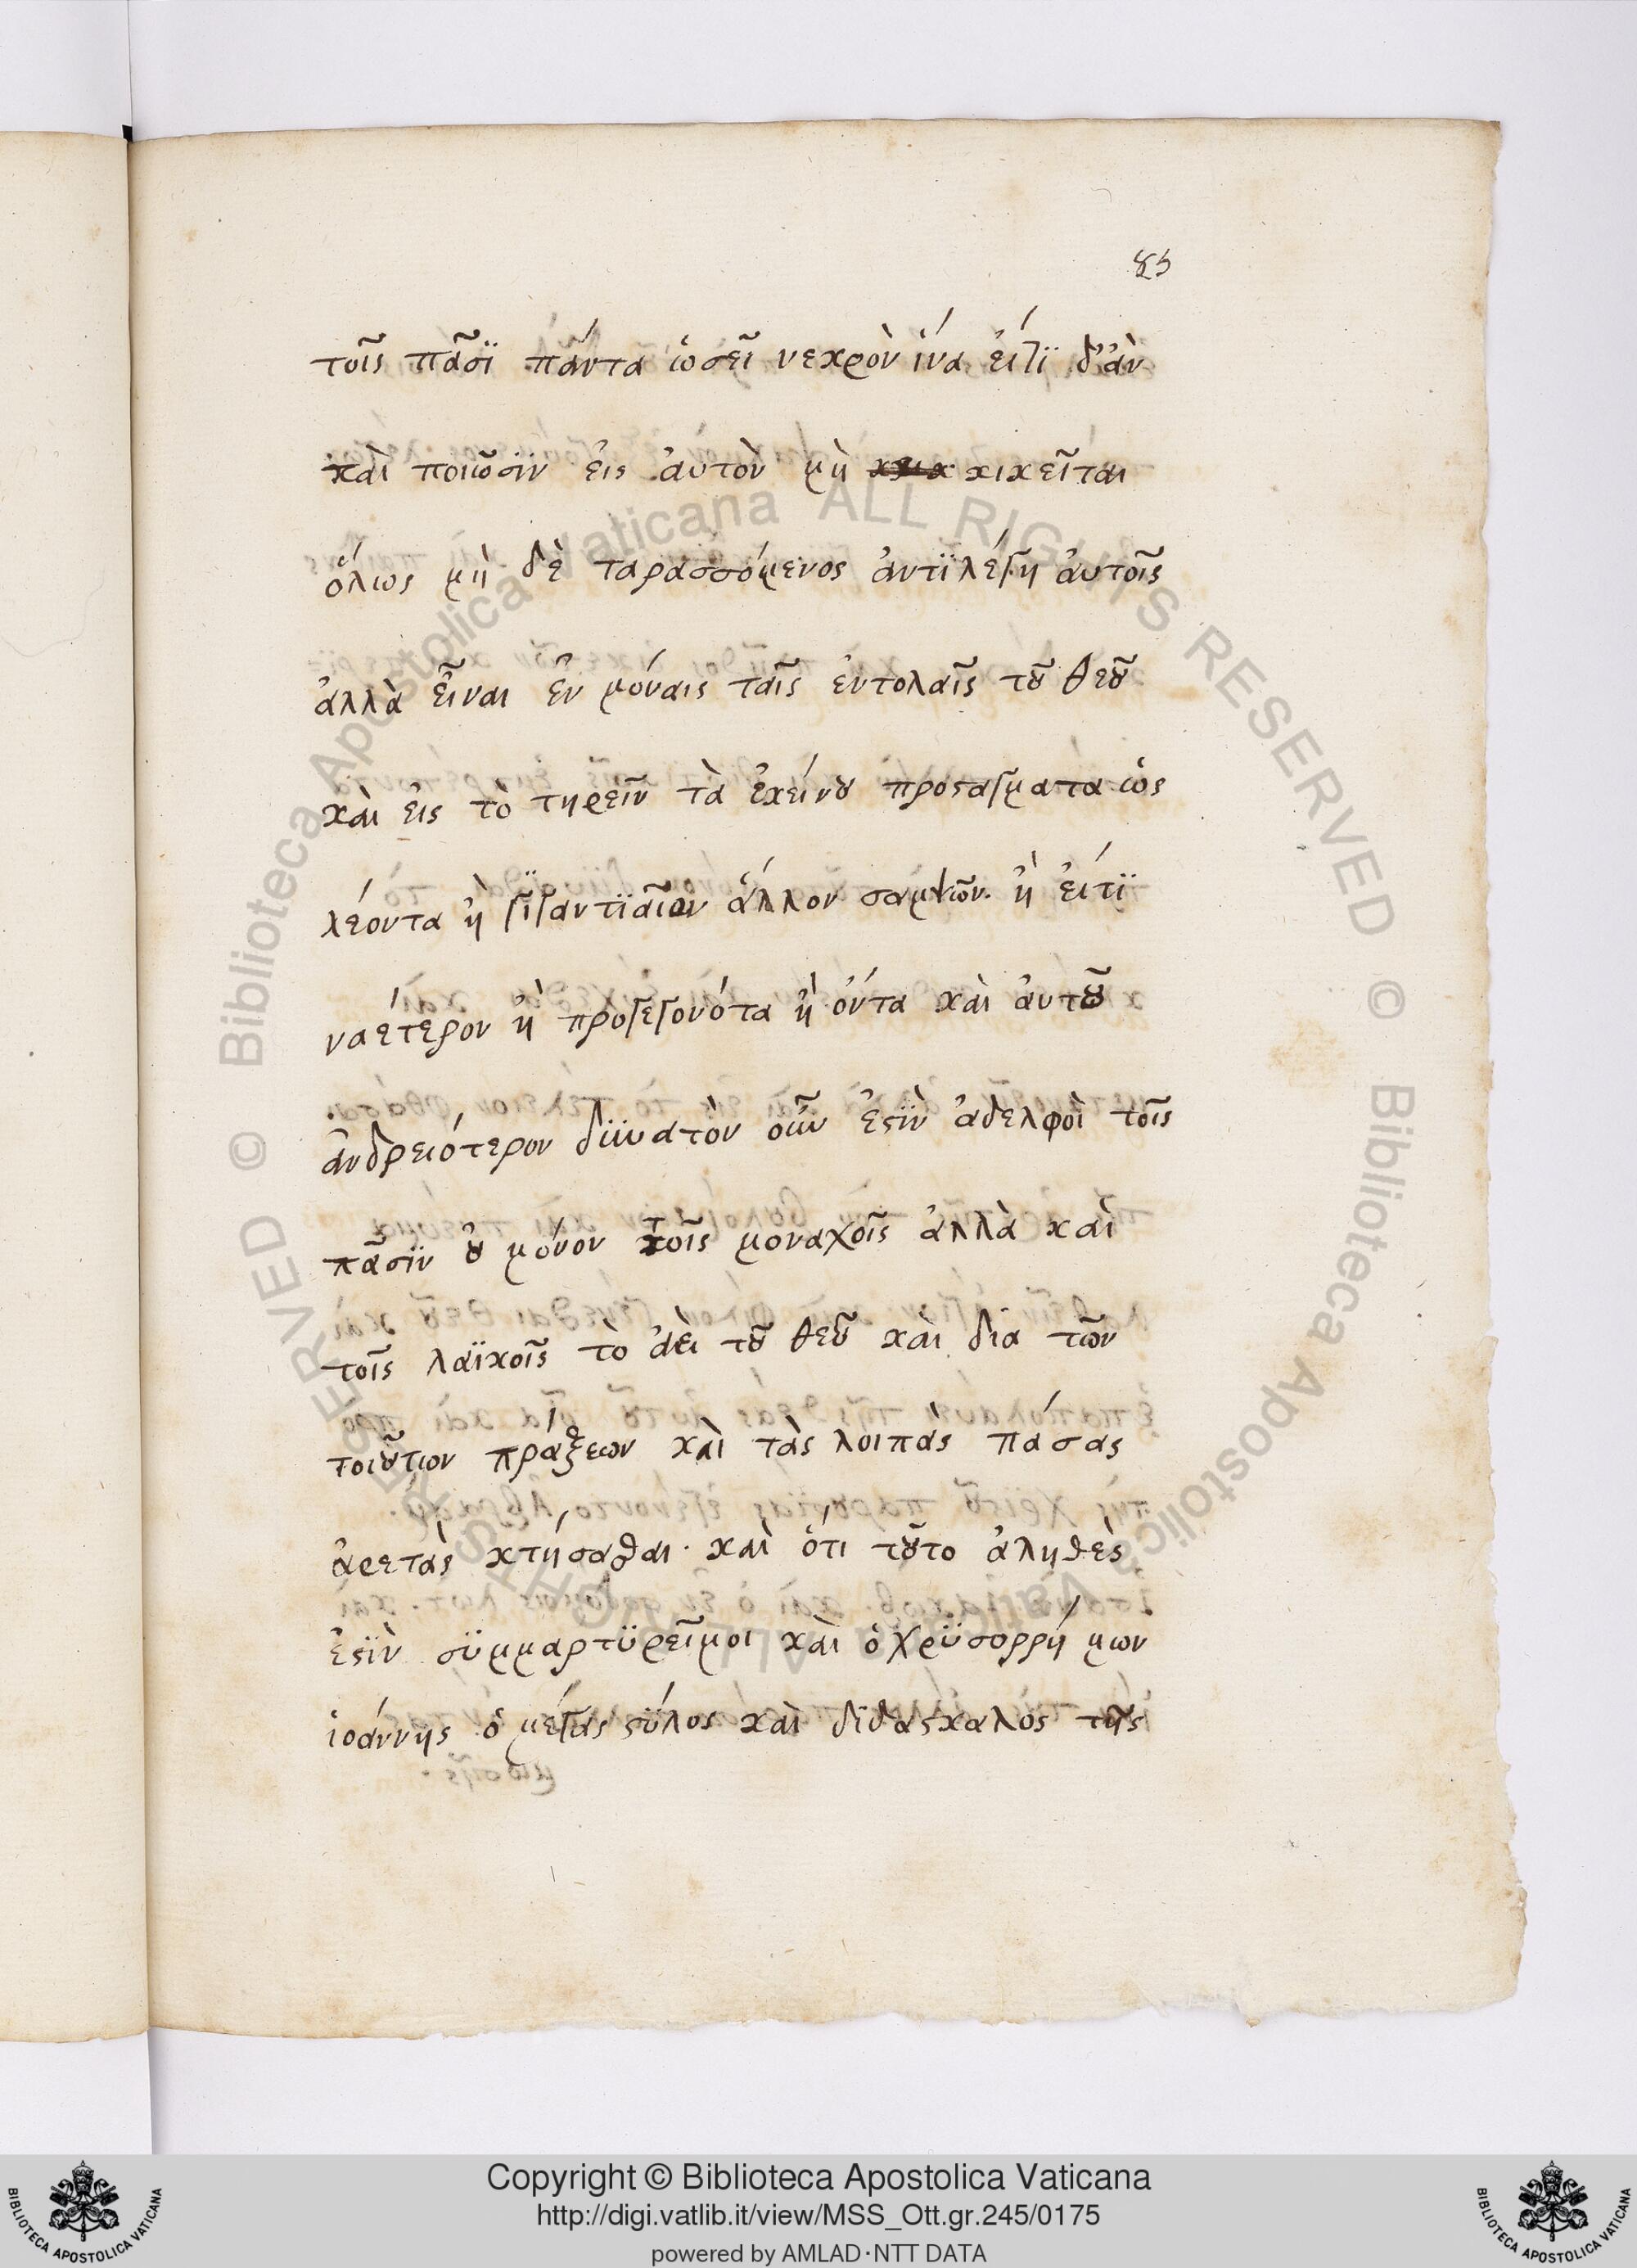 85
τοῖς πᾶσϊ πάντα ὡσεῖ νεκρὸν ἵνα εἴτϊ δ'ἂν
καὶ ποιῶσϊν εἰς ἀυτὸν μὴ κικεῖται
ὅλως μὴ δὲ ταρασσόμενος ἀντϊλέγη ἀυτοῖς
ἀλλὰ εἶναι ἐν μόναις ταῖς ἐντολαῖς τȣ͂ θεȣ͂
καὶ εἰς τὸ τηρεῖν τὰ ἐκείνȣ προσταγματα ὡς
λέοντα ἢ γῒγαντϊαῖον ἄλλον σαμψῶν. ἢ εἴτϊ
να ἕτερον ἢ προγεγονότα ἢ ὄντα καὶ ἀυτȣ͂
ἀνδρειότερον δϋνατὸν οὖν ἐστῒν ἀδελφοὶ τοῖς
πᾶσϊν ȣ̓ μόνον τοῖς μοναχοῖς ἀλλὰ καὶ
τοῖς λαϊκοῖς τὸ ἀεὶ τȣ͂ θεȣ͂ καὶ δϊα τῶν
τοιȣ́των πράξεων καὶ τὰς λοιπὰς πάσας
ἀρετὰς κτήσασθαι· καὶ ὅτι τȣ͂το ἀληθὲς
ἐστῒν σϋμμαρτϋρεῖμοι καὶ ὁ χρϋσορρήμων
ἰοάννης ὁ μέγας στῦλος καὶ δϊδασκαλος τῆς
Copyright © Biblioteca Apostolica Vaticana
http://digi.vatlib.it/view/MSS_Ott.gr.245/0175
powered by AMLAD·NTT DATA
BIBLIOTECA APOSTOLICA VATICANA
BIBLIOTECA APOSTOLICA VATICANA